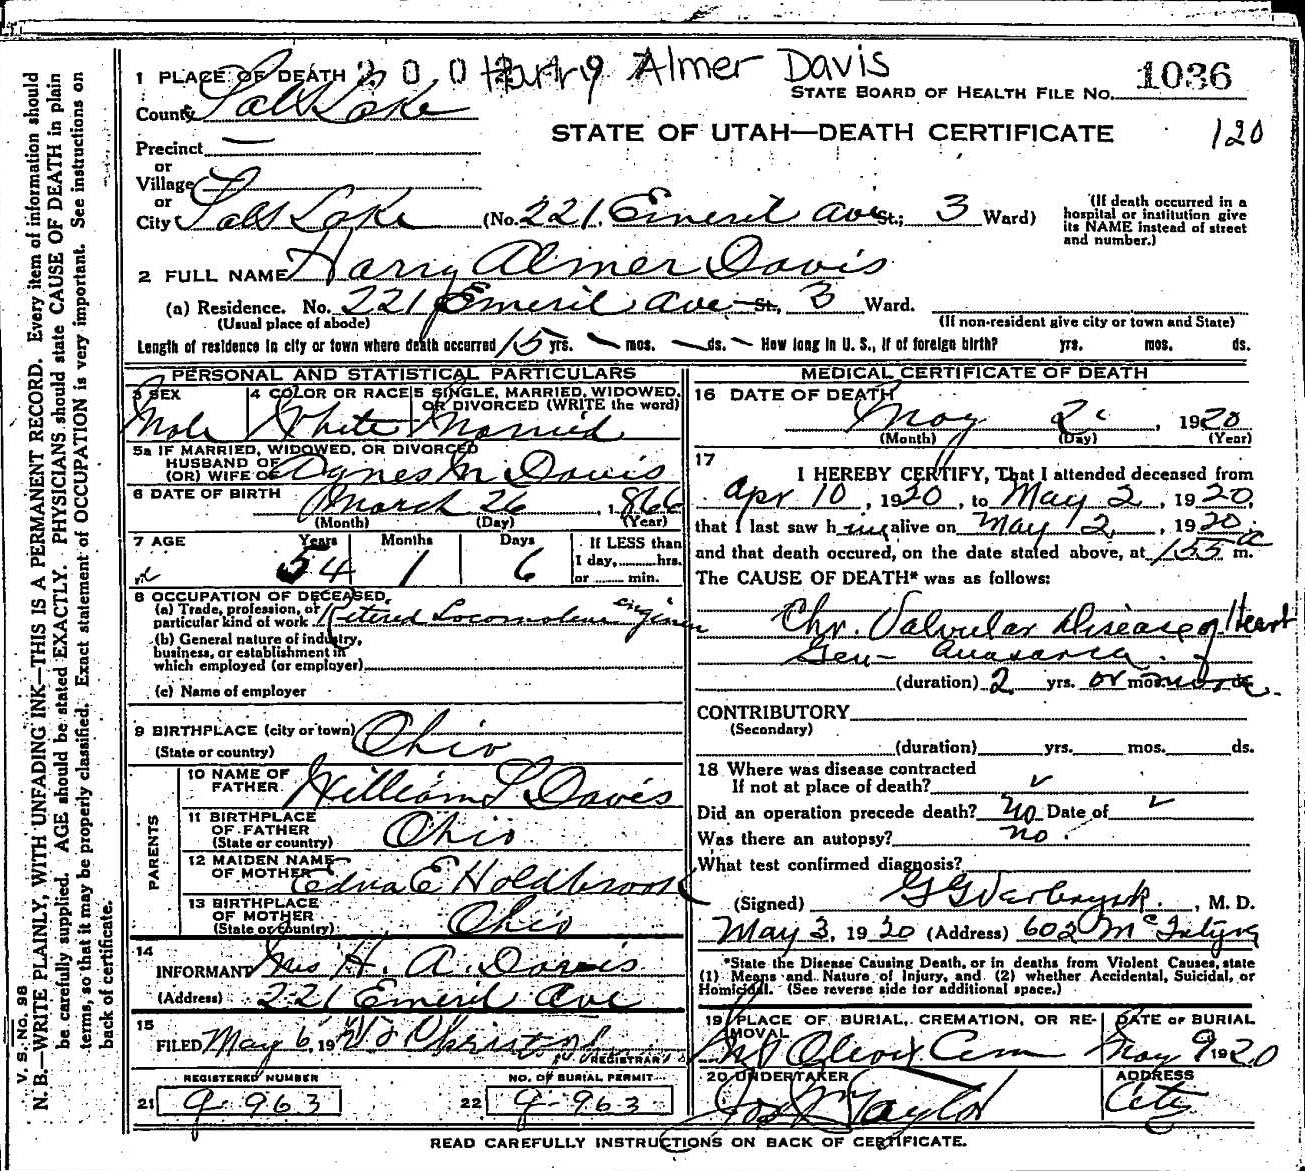 Harry Almer Davis
1 PLACE OF DEATH
STATE BOARD OF HEALTH FILE No. 1036
County Salt Lake
STATE OF UTAH—DEATH CERTIFICATE
120
Precinct —
or
Village
or
City Salt Lake (No. 221 Emeril Ave St.; 3 Ward)
(If death occurred in a hospital or institution give its NAME instead of street and number.)
2 FULL NAME Harry Almer Davis
(a) Residence. No. 221 Emeril Ave St., 3 Ward.
(Usual place of abode)
(If non-resident give city or town and State)
Length of residence in city or town where death occurred 15 yrs. — mos. — ds. — How long in U. S., if of foreign birth? yrs. mos. ds.
PERSONAL AND STATISTICAL PARTICULARS
3 SEX
Male
4 COLOR OR RACE
White
5 SINGLE, MARRIED, WIDOWED, OR DIVORCED (WRITE the word)
Married
5a IF MARRIED, WIDOWED, OR DIVORCED
HUSBAND OF
(OR) WIFE OF Agnes M Davis
6 DATE OF BIRTH March 26, 1866
(Month) (Day) (Year)
7 AGE Years Months Days
54 1 6
If LESS than
1 day, hrs.
or min.
8 OCCUPATION OF DECEASED
(a) Trade, profession, or
particular kind of work Retired Locomotive Engineer
(b) General nature of industry,
business, or establishment in
which employed (or employer)
(c) Name of employer
9 BIRTHPLACE (city or town) Ohio
(State or country)
PARENTS
10 NAME OF FATHER William S Davis
11 BIRTHPLACE OF FATHER Ohio
(State or country)
12 MAIDEN NAME OF MOTHER Edna E Holdbrook
13 BIRTHPLACE OF MOTHER Ohio
(State or country)
14
INFORMANT Mrs H. A. Davis
(Address) 221 Emeril Ave
15
FILED May 6, 19
REGISTRAR
REGISTERED NUMBER
21 9-963
NO. OF BURIAL PERMIT
22 9-963
MEDICAL CERTIFICATE OF DEATH
16 DATE OF DEATH
May 2, 1920
(Month) (Day) (Year)
17
I HEREBY CERTIFY, That I attended deceased from
Apr 10, 1920, to May 2, 1920,
that I last saw him alive on May 2, 1920
and that death occured, on the date stated above, at 155 a m.
The CAUSE OF DEATH* was as follows:
Chr. Valvular Disease of Heart
Gen- Anasarca.
(duration) 2 yrs. or mos. more ds.
CONTRIBUTORY
(Secondary)
(duration) yrs. mos. ds.
18 Where was disease contracted
If not at place of death?
Did an operation precede death? No Date of
Was there an autopsy? no.
What test confirmed diagnosis?
(Signed) , M. D.
May 3, 1920 (Address) 602 McIntyre
*State the Disease Causing Death, or in deaths from Violent Causes, state
(1) Means and Nature of Injury, and (2) whether Accidental, Suicidal, or
Homicidal. (See reverse side for additional space.)
19 PLACE OF BURIAL, CREMATION, OR REMOVAL
Mt Olivet Cem
DATE OF BURIAL
May 9 1920
20 UNDERTAKER
Jos Wm Taylor
ADDRESS
City
READ CAREFULLY INSTRUCTIONS ON BACK OF CERTIFICATE.
V. S. No. 98
N. B.—WRITE PLAINLY, WITH UNFADING INK—THIS IS A PERMANENT RECORD. Every item of information should
be carefully supplied. AGE should be stated EXACTLY. PHYSICIANS should state CAUSE OF DEATH in plain
terms, so that it may be properly classified. Exact statement of OCCUPATION is very important. See instructions on
back of certificate.